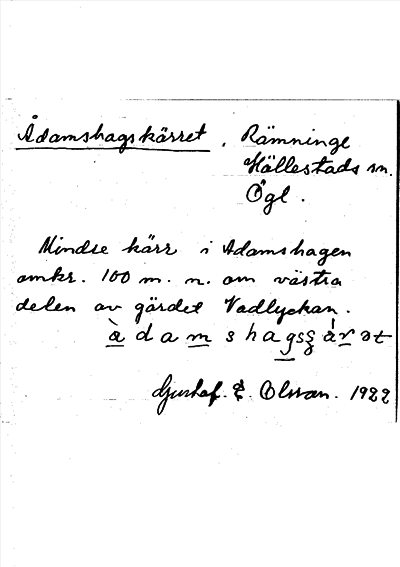 Ådamshagskärret, Rämninge
Hällestads sn.
Ögl.
Mindre kärr i Adamshagen
omkr. 100 m. n. om västra
delen av gärdet Vadlyckan.
Gustaf. E. Olsson. 1922